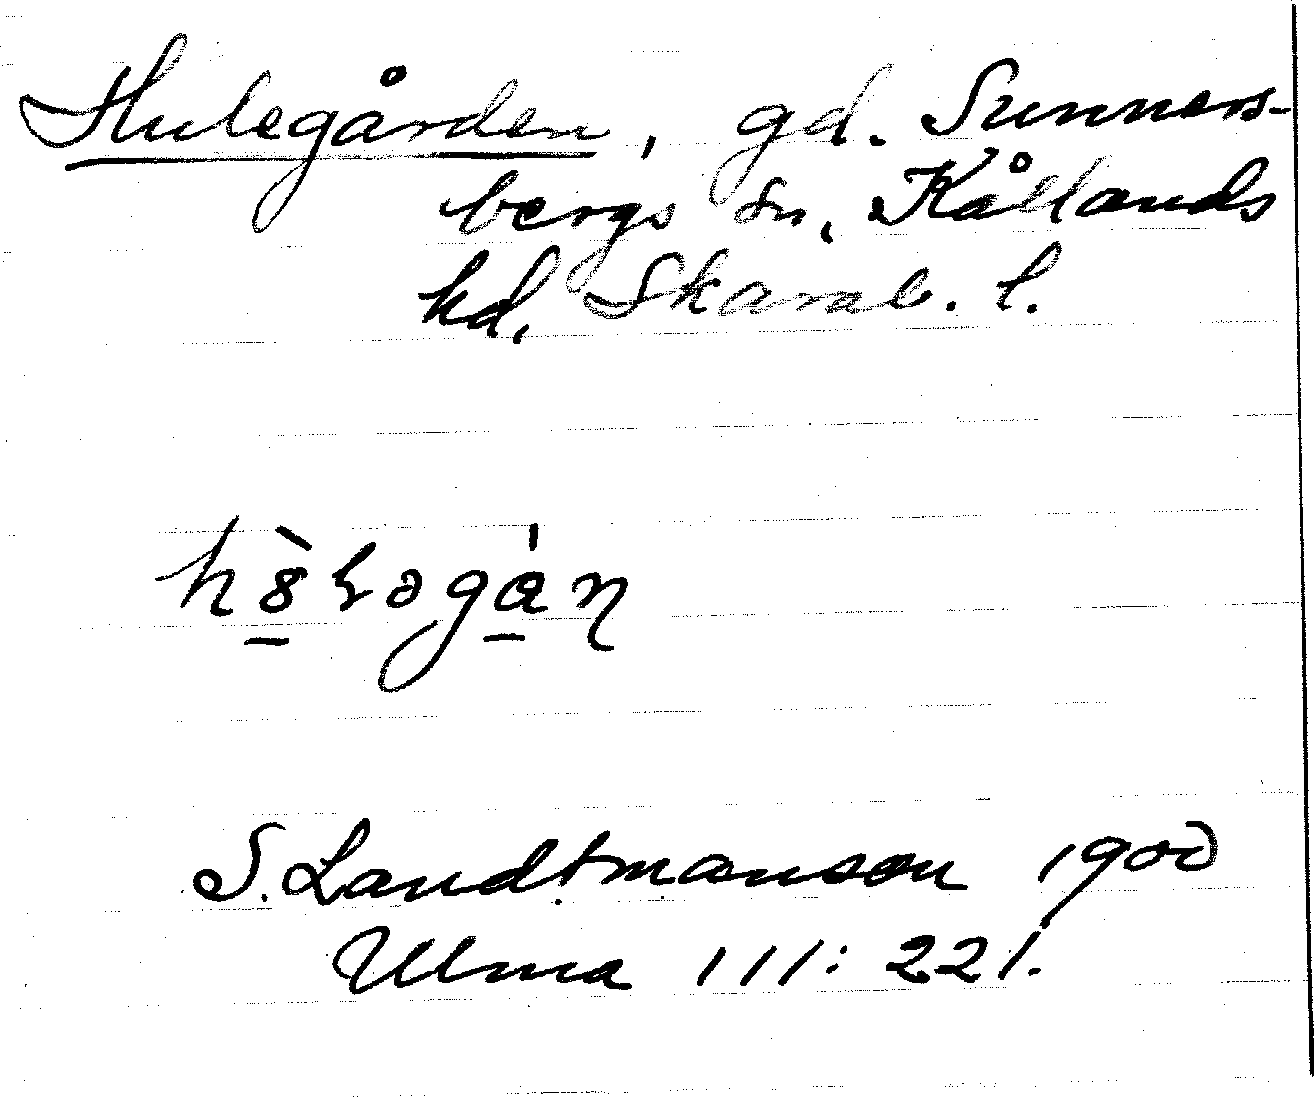 Hulegården, gd. Sunners-
bergs sn, Kållands
hd, Skarab. l.
S. Landtmanson 1900
Ulma 111: 221.